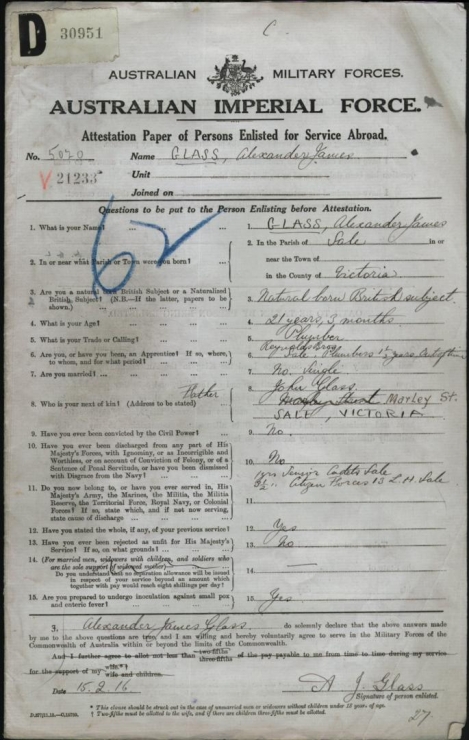 C
D 30951
AUSTRALIAN MILITARY FORCES.
AUSTRALIAN IMPERIAL FORCE.
Attestation Paper of Persons Enlisted for Service Abroad.
No. 5070 Name GLASS, Alexander James
V. 21233 Unit
Joined on
Questions to be put to the Person Enlisting before Attestation.
62
1. What is your Name? ... ... ... 1. GLASS, Alexander James
2. In or near what Parish or Town were you born? ... 2. In the Parish of Sale in or
near the Town of
in the County of Victoria
3. Are you a natural born British Subject or a Naturalized 3. Natural born British subject.
British Subject? (N.B.—If the latter, papers to be
shown.) ... ...
4. What is your Age? ... ... 4. 21 years, 3 months
5. What is your Trade or Calling? ... 5. Plumber
6. Are you, or have you been, an Apprentice? If so, where, 6. Reynolds Bros
to whom, and for what period? ... Sale Plumbers 1½ years
7. Are you married? ... ... 7. No. Single
8. Who is your next of kin? (Address to be stated) Father 8. John Glass.
Morley St.
SALE, VICTORIA
9. Have you ever been convicted by the Civil Power? ... 9. No.
10. Have you ever been discharged from any part of His 10. No
Majesty's Forces, with Ignominy, or as Incorrigible and
Worthless, or on account of Conviction of Felony, or of a
Sentence of Penal Servitude, or have you been dismissed
with Disgrace from the Navy? ...
11. Do you now belong to, or have you ever served in, His Junior Cadets Sale
Majesty's Army, the Marines, the Militia, the Militia Citizen Forces 13 L.H. Sale
Reserve, the Territorial Force, Royal Navy, or Colonial
Forces? If so, state which, and if not now serving,
state cause of discharge ...
12. Have you stated the whole, if any, of your previous service? 12. Yes
13. Have you ever been rejected as unfit for His Majesty's 13. No
Service? If so, on what grounds? ...
14. (For married men, widowers with children, and soldiers who 14. —
are the sole support of widowed mother)
Do you understand that no separation allowance will be issued
in respect of your service beyond an amount which
together with pay would reach eight shillings per day?
15. Are you prepared to undergo inoculation against small pox 15. Yes
and enteric fever? ...
3. I, Alexander James Glass, do solemnly declare that the above answers made
by me to the above questions are true, and I am willing and hereby voluntarily agree to serve in the Military Forces of the
Commonwealth of Australia within or beyond the limits of the Commonwealth.
And I further agree to allot not less than two-fifths three-fifths of the pay payable to me from time to time during my service
for the support of my wife* wife and children.
Date 15.2.16 A J Glass
Signature of person enlisted.
* This clause should be struck out in the case of unmarried men or widowers without children under 18 years of age.
† Two-fifths must be allotted to the wife, and if there are children three-fifths must be allotted.
27.